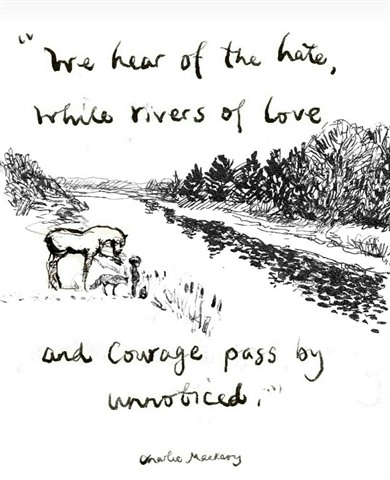 "We hear of the hate,
while rivers of love
and courage pass by
unnoticed."
Charlie Mackesy